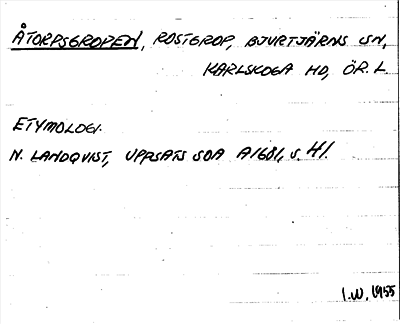 ÅTORPSGROPEN, ROSTGROP, BJURTJÄRNS SN,
KARLSKOGA HD, ÖR. L.
ETYMOLOGI.
N. LANDQVIST, UPPSATS SOA A1681, S. 41.
I.W. 1955